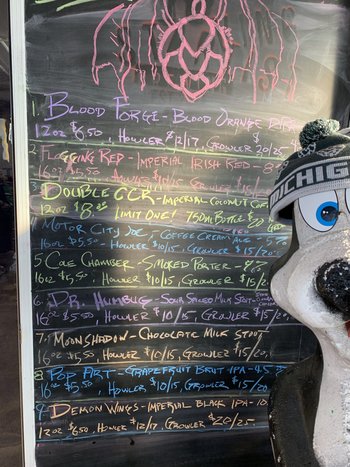 1. BLOOD FORGE - BLOOD ORANGE
12oz $6.50, HOWLER $12/17, GROWLER $20/25
2 FLOGGING RED - IMPERIAL IRISH RED - 8
HOWLER $10/15, GROWLER $15/20
3 DOUBLE CCR - IMPERIAL COCONUT
12oz LIMIT ONE! 750ml BOTTLE $20
MOTOR CITY JOE - COFFEE CREAM ALE -
16oz $5.50 - HOWLER $10/15, GROWLER $15/20
5 COLE CHAMBER - SMOKED PORTER -
16oz $5.50, HOWLER $10/15, GROWLER $15/20,
6 DR. HUMBUG - SOUR SPICED MILK STOUT
16oz $5.50, HOWLER $10/15, GROWLER $15/20,
7 MOON SHADOW - CHOCOLATE MILK STOUT
16oz $5.50, HOWLER $10/15, GROWLER $15/20,
8 POP ART - GRAPEFRUIT BRUT IPA - 4.5
16oz $5.50, HOWLER $10/15, GROWLER $15/20
9 DEMON WINGS - IMPERIAL BLACK IPA - 10
12oz $6.50, HOWLER $12/17, GROWLER $20/25
MICHIG